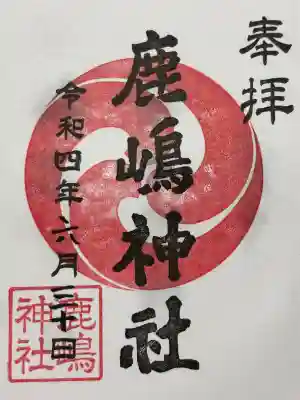 奉拝
鹿嶋神社
令和四年六月三十日
鹿嶋
神社